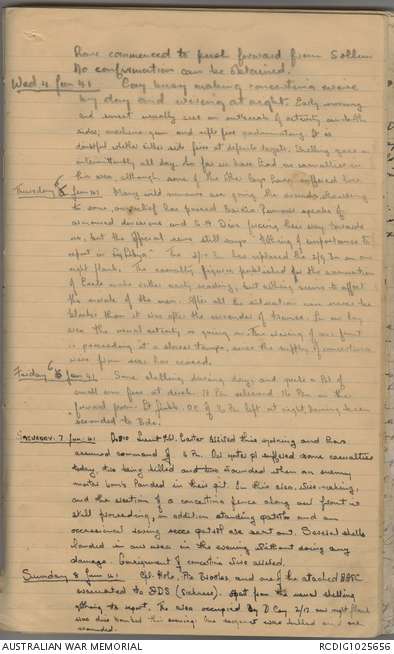 have commenced to push forward from Sollum
No confirmation can be obtained.
Wed 4 Jun 41 Coy busy making concertina wire
by day and wiring at night. Early morning
and sunset usually sees an outbreak of activity on both
sides, machine gun and rifle fire predominating. It is
doubtful whether either side fires at definite targets. Shelling goes on
intermittently all day. So far we have had no casualties in
this area, although some of the other Coys have suffered here
Thursday 5 Jun 41 Many wild rumours are going the rounds. According
to some, our relief has passed Bardia. Rumour speaks of
armoured divisions and S.A. Divs forcing their way towards
us, but the official news still says "Nothing of importance to
report in Libya". The 2/12 Bn has replaced the 2/9 Bn on our
right flank. The casualty figures published for the evacuation
of Crete make rather nasty reading, but nothing seems to affect
the morale of the men. After all the situation can never be
blacker than it was after the surrender of France. In our Coy
area the usual activity is going on. The wiring of our front
is proceeding at a slower tempo, since the supply of concertinas
were from rear has ceased.
Friday 6 Jun 41 Some shelling during day, and quite a bit of
small arm fire at dusk. 17 Pn relieved 16 Pn in the
forward posn. Lt O.C. of Pn left at night, having been
seconded to Bde.
Saturday. 7 Jun 41 Lieut H.W. Carter arrived this evening and has
assumed command of Pn. Our suffered some casualties
today, two being killed and two wounded when an enemy
mortar bomb landed in their pit. In this area, wire-making,
and the erection of a concertina fence along our front is
still proceeding, in addition standing patrols and an
occasional roving recce patrol are sent out. Several shells
landed in our area in the evening without doing any
damage. Consignment of concertina wire arrived.
Sunday 8 Jun 41 Cpl. Hole, Pte Brookes and one of the attached
evacuated to ADS (sickness). Apart from the usual shelling
nothing to report. The area occupied by D Coy 2/12 our right flank
was dive bombed this evening. One sergeant was killed and one
wounded.
AUSTRALIAN WAR MEMORIAL
RCDIG1025656